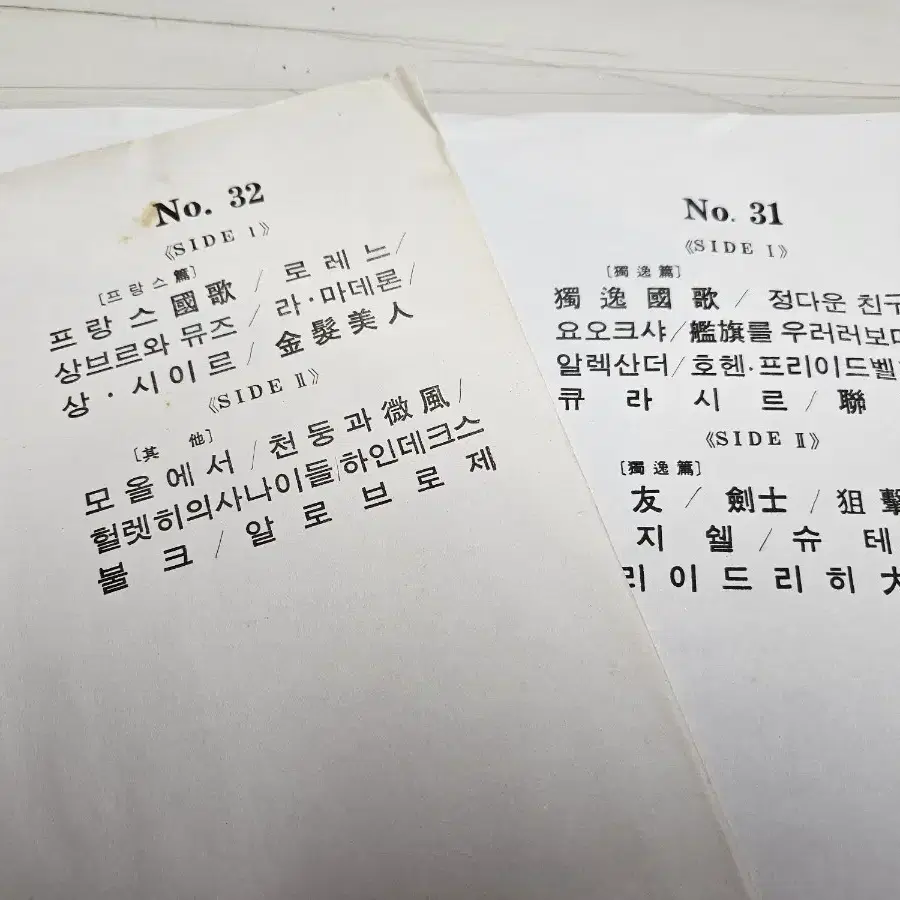 No. 32
《SIDE I》
[프랑스篇]
프랑스國歌/로레느/
상브르와 뮤즈/라·마데론/
상·시이르/金髮美人
《SIDE II》
[其 他]
모올에서/천둥과微風/
헐렛히의사나이들/하인데크스
불크/알로브로제
No. 31
《SIDE I》
[獨逸篇]
獨逸國歌/정다운 친구
요오크샤/艦旗를 우러러보며
알렉산더/호헨·프리이드벨
큐라시르/聯
《SIDE II》
[獨逸篇]
友/劍士/狙擊
지쉘/슈테
리이드리히大